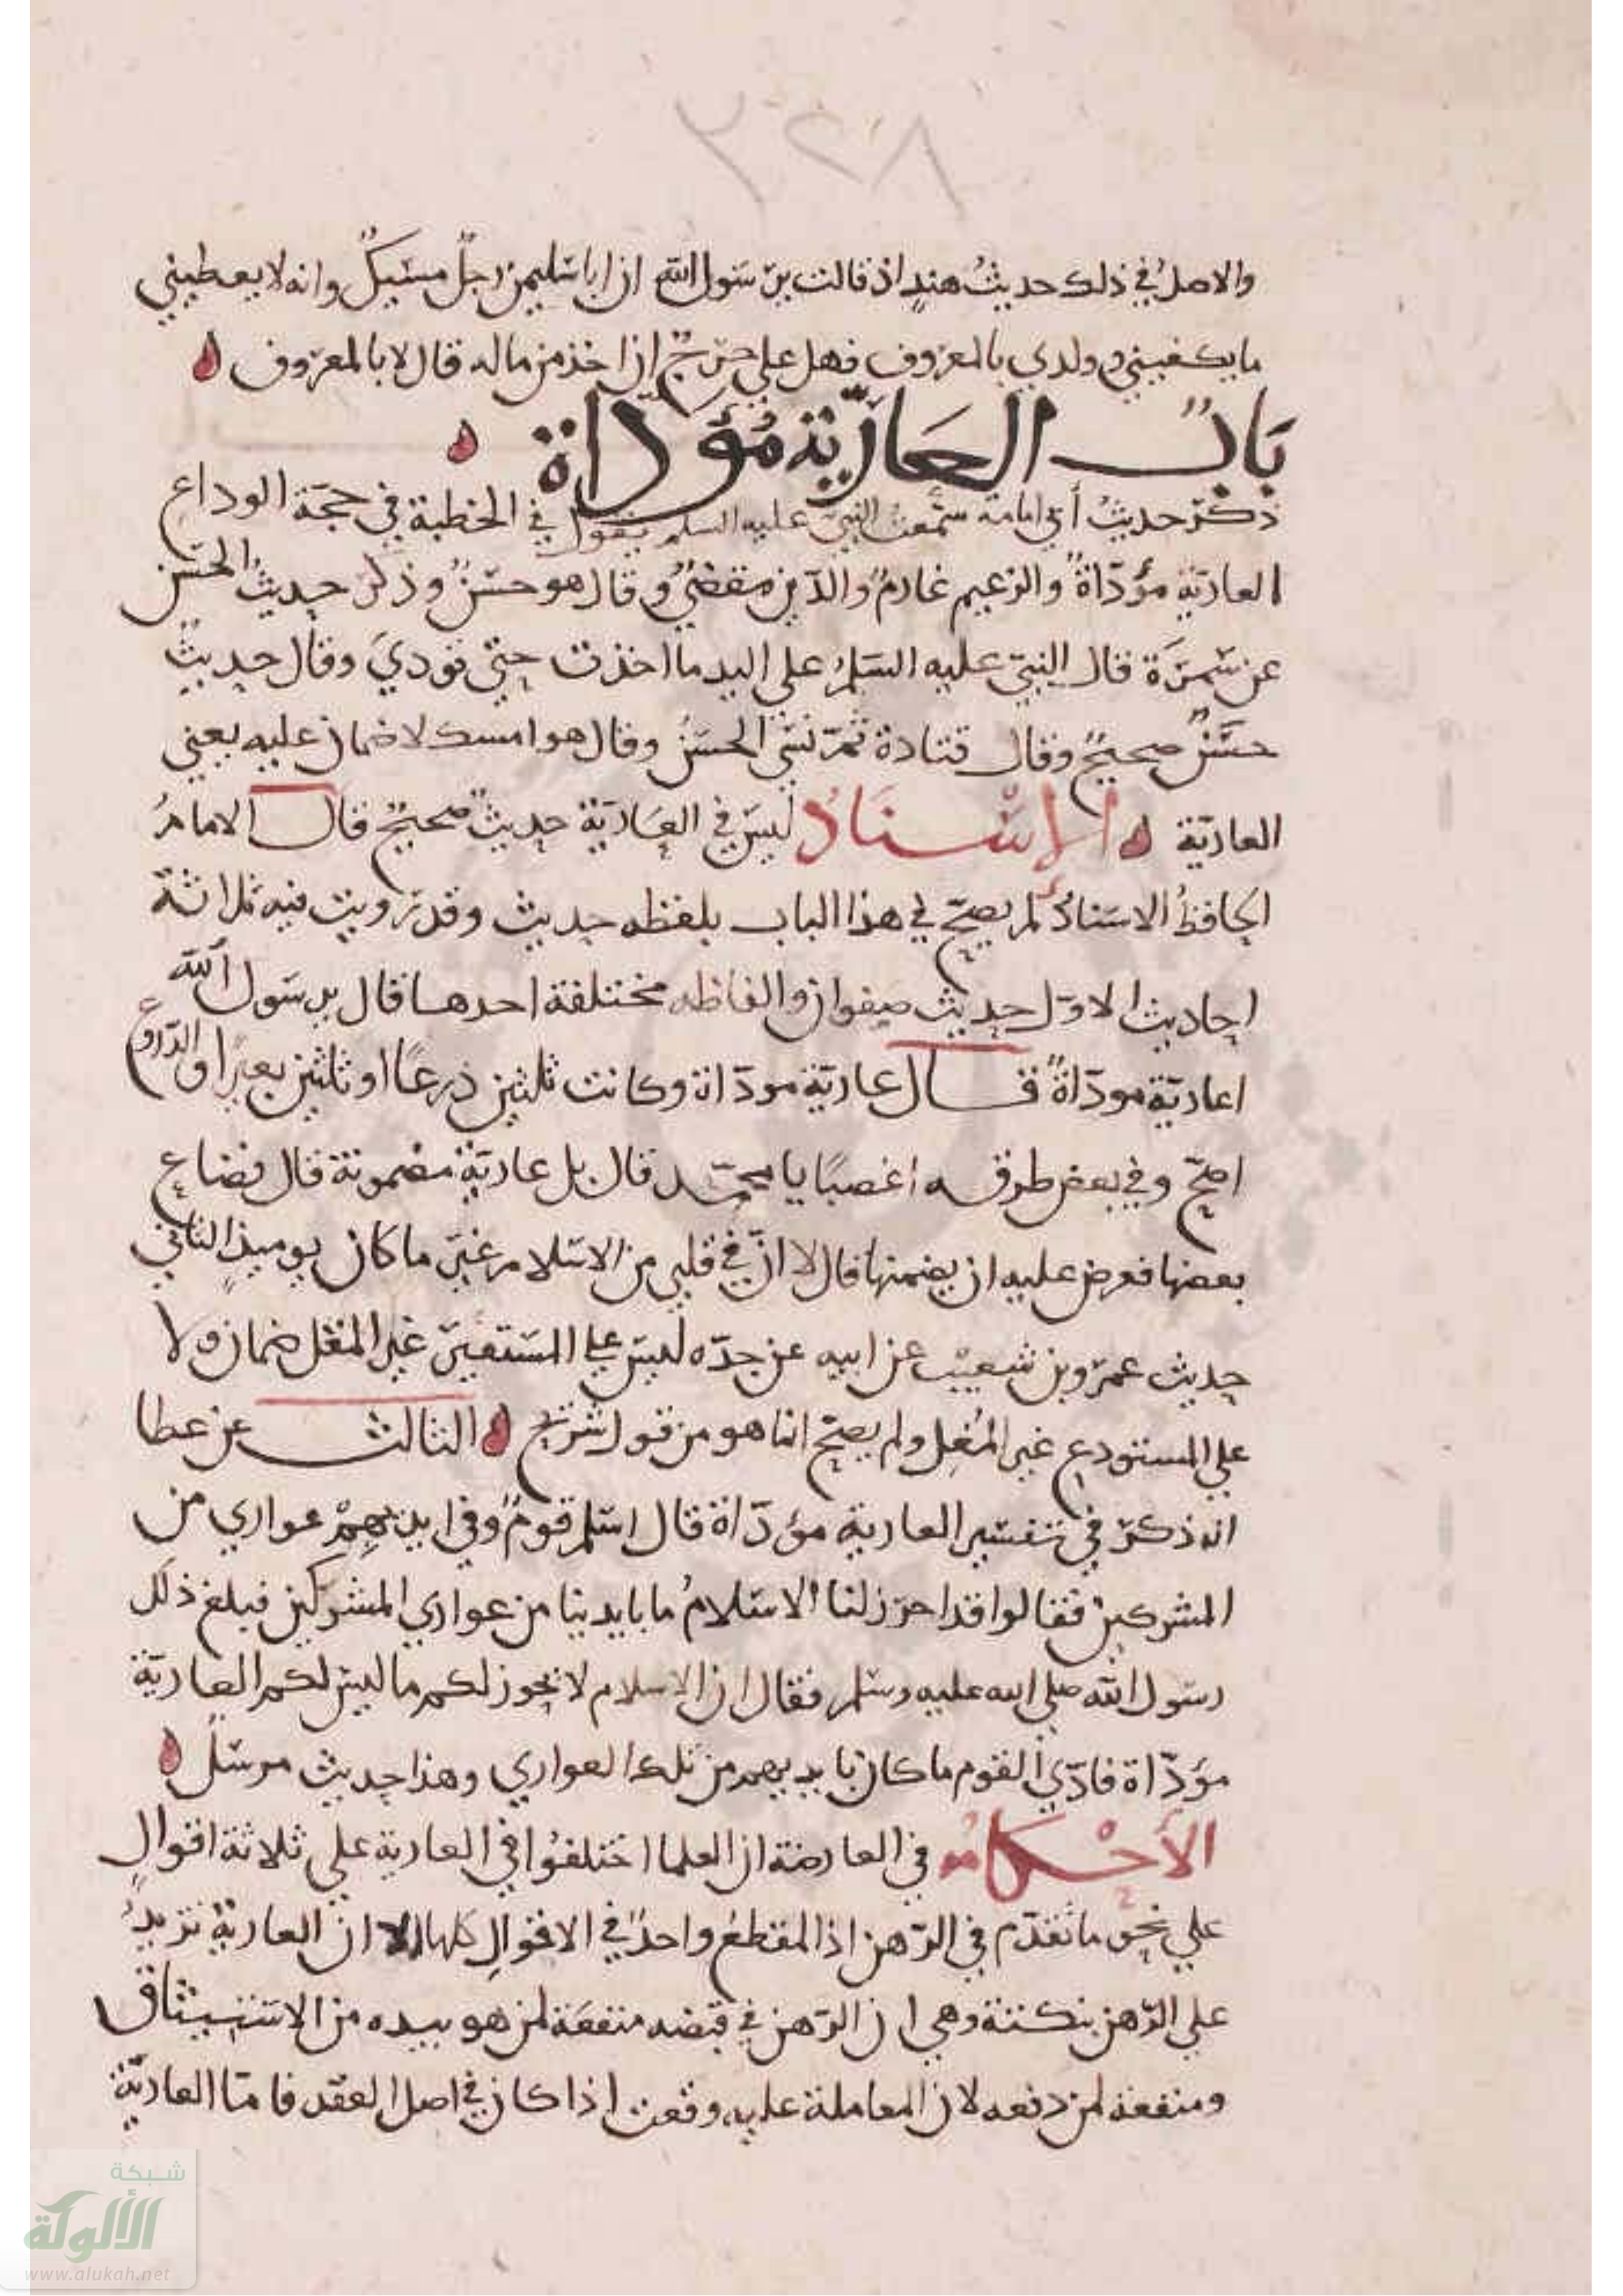 ٢٢٨
والاصل في ذلك حديث هند اذ قالت يرسول الله ان ابا سليمن رجل مسيك وانه لا يعطيني
ما يكفيني وولدي بالمعروف فهل علي حرج ان اخذ من ماله قال لا بالمعروف
بَابُ العَارِيّة مُؤَدّاة
ذكر حديث أبي امامة سمعت النبي عليه السلم يقول في الخطبة في حجة الوداع
العارية مؤدّاة والزعيم غارم والدين مقضي وقال هو حسن وذكر حديث الحسن
عن سمرة قال النبي عليه السلم على اليد ما اخذت حتى تودي وقال حديث
حسن صحيح وقال قتادة ثم نسي الحسن وقال هو امسك لا ضمان عليه يعني
العارية الإسناد ليس في العارية حديث صحيح قال الامام
الحافظ الاسناد لم يصح في هذا الباب بلفظه حديث وقد رويت فيه ثلاثة
احاديث الاول حديث صفوان والفاظه مختلفة احدها قال يرسول الله
اعارية موداة قال عارية موداة وكانت ثلثين درعا او ثلثين بعيرا والدروع
اصح وفي بعض طرقه اغصبا يا محمد قال بل عارية مضمونة قال فضاع
بعضها فعرض عليه ان يضمنها قال لا ان في قلبي من الاسلام غير ما كان يوميذ الثاني
حديث عمرو بن شعيب عن ابيه عن جده ليس على المستعير غير المغل ضمان ولا
على المستودع غير المغل ولم يصح انما هو من قول شريح الثالث عن عطا
انه ذكر في تفسير العارية مؤدّاة قال اسلم قوم وفي ايديهم عواري من
المشركين فقالوا قد احرز لنا الاسلام ما بايدينا من عواري المشركين فبلغ ذلك
رسول الله صلى الله عليه وسلم فقال ان الاسلام لا يحرز لكم ما ليس لكم العارية
مؤدّاة فادّى القوم ما كان بايديهم من تلك العواري وهذا حديث مرسل
الأحكام في العارضة ان العلما اختلفوا في العارية على ثلاثة اقوال
على نحو ما تقدم في الرهن اذ المقطع واحد في الاقوال كلها الا ان العارية تزيد
على الرهن بنكتة وهي ان الرهن في قبضه منفعة لمن هو بيده من الاستيثاق
ومنفعة لمن دفعه لان المعاملة عليه وقعت اذا كان في اصل العقد فامّا العاريّة
شبكة
الألوكة
www.alukah.net